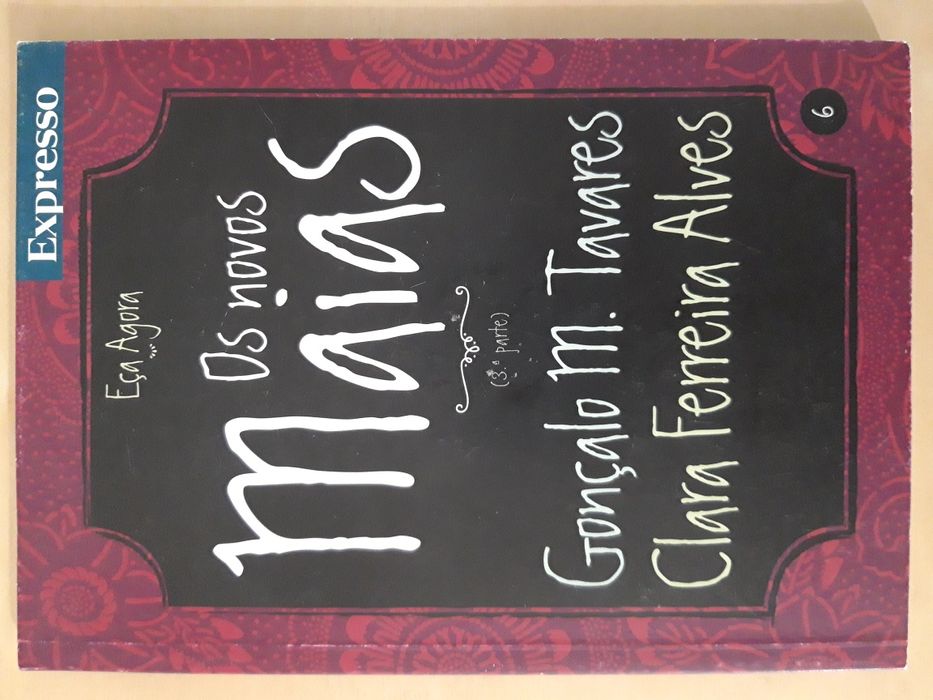 Expresso
Eça Agora
Os novos
maias
(3.ª parte)
Gonçalo M. Tavares
Clara Ferreira Alves
6